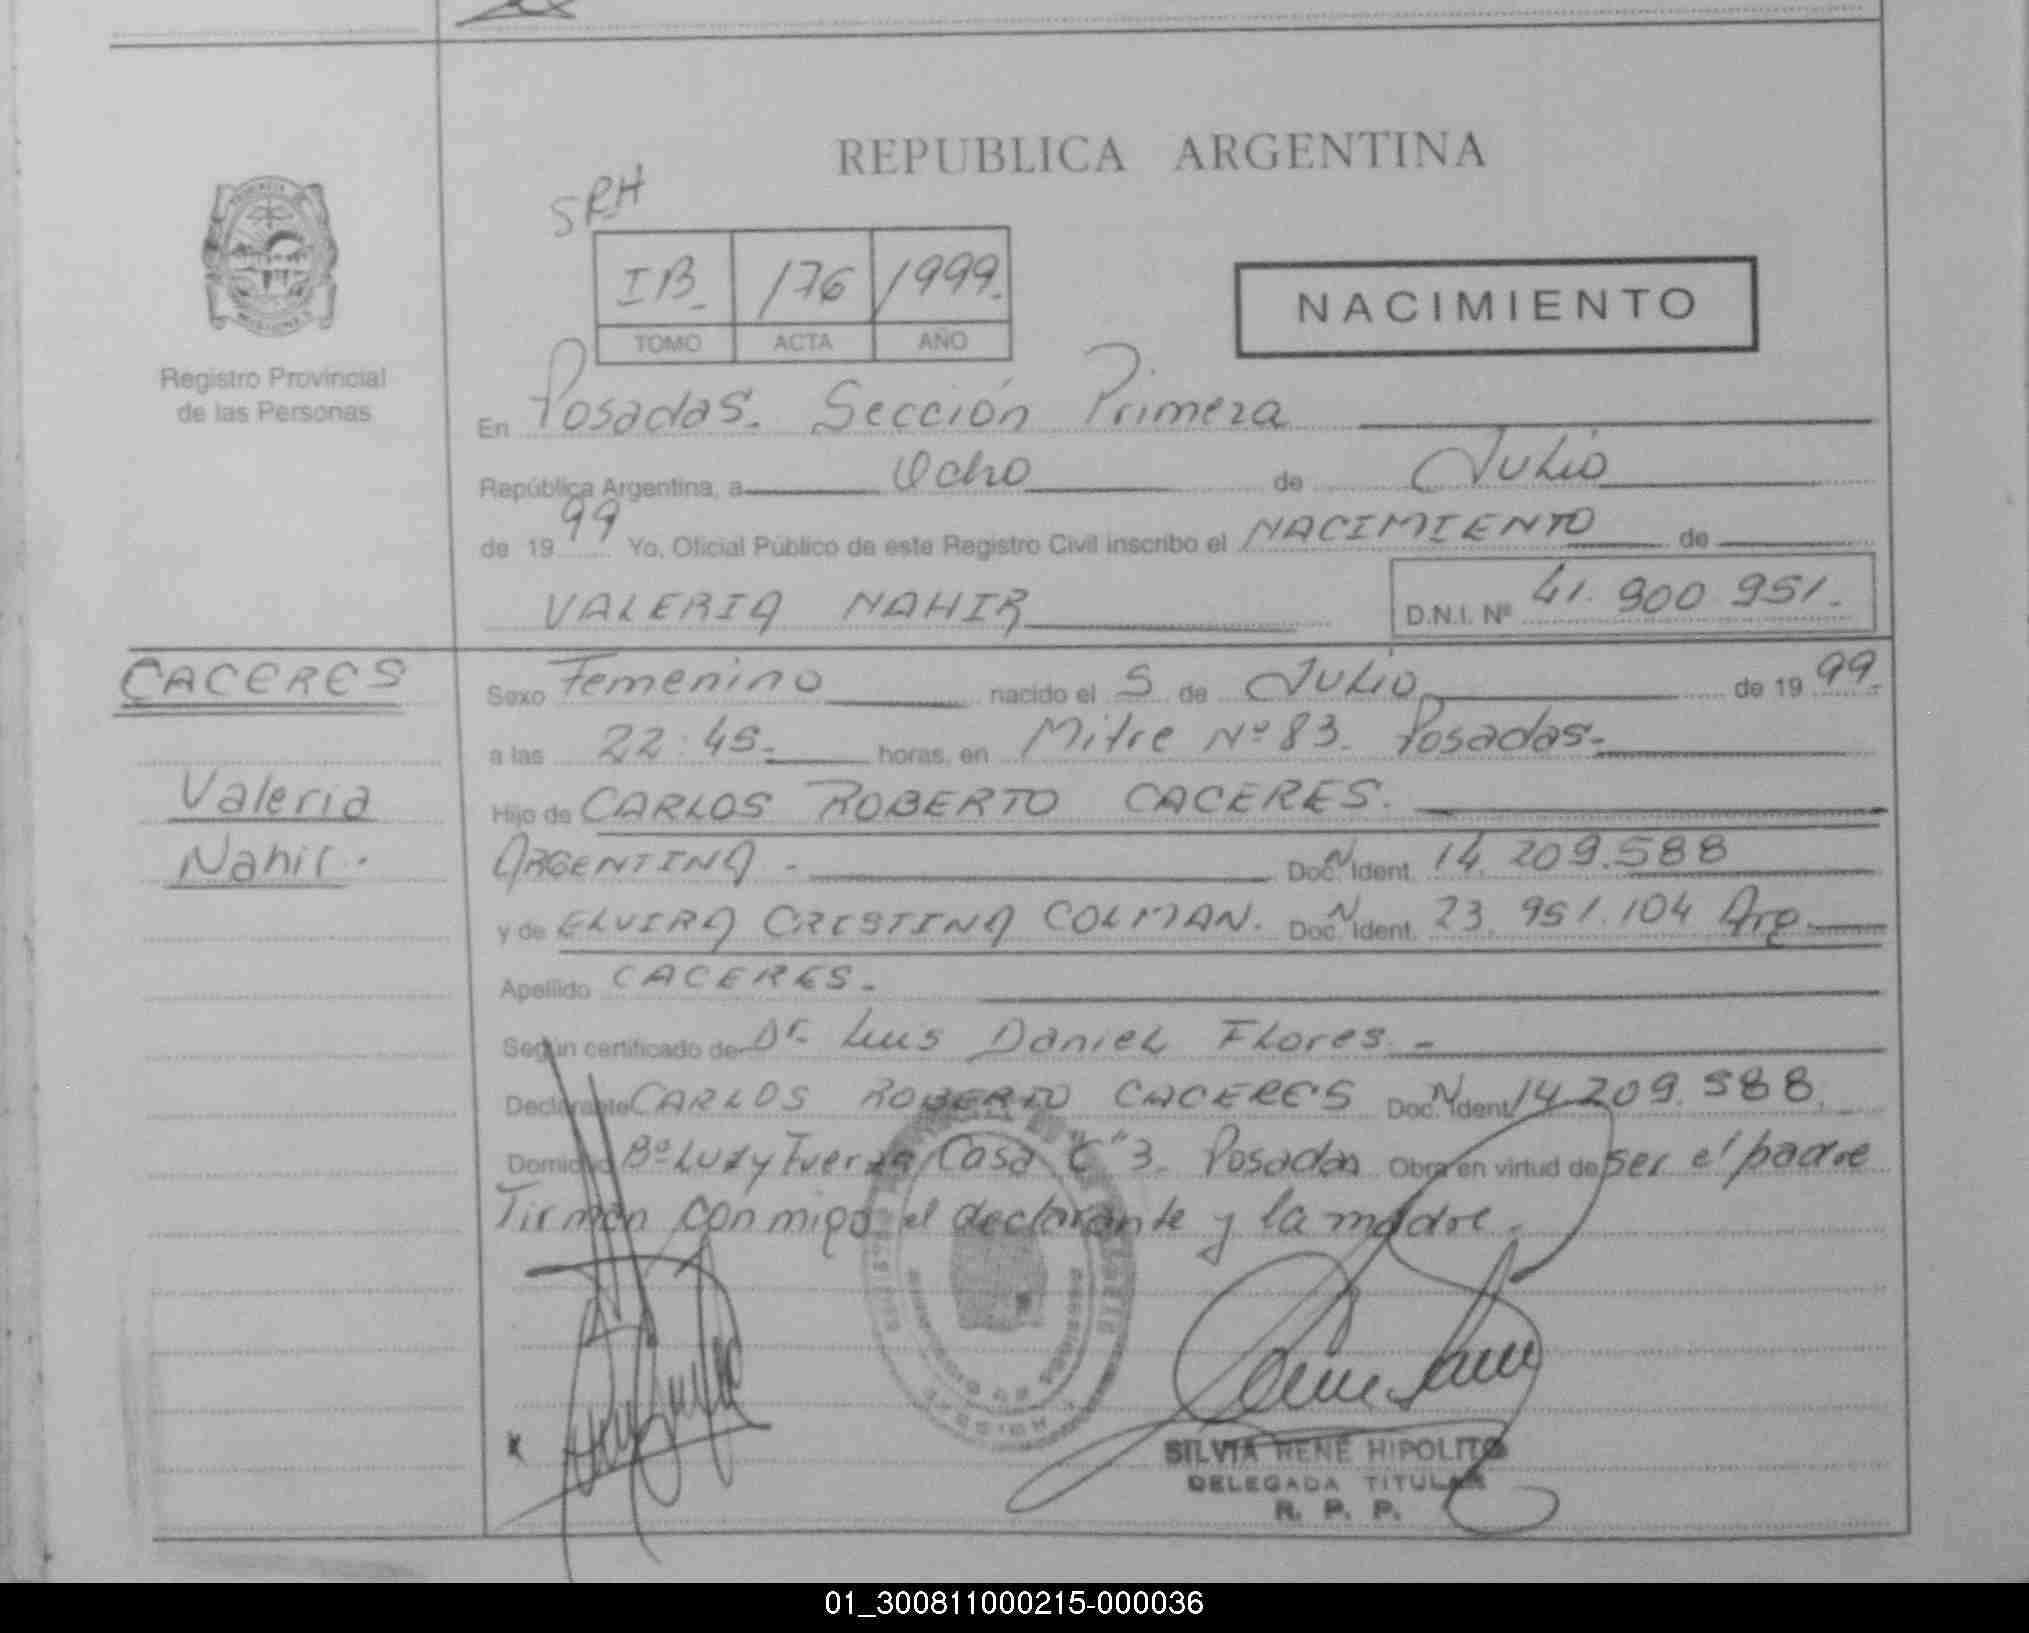 REPUBLICA ARGENTINA
SRH
IB. 176 1999.
TOMO ACTA AÑO
NACIMIENTO
Registro Provincial
de las Personas
En Posadas. Sección Primera
República Argentina, a Ocho de Julio
de 1999 Yo, Oficial Público de este Registro Civil inscribo el NACIMIENTO de
VALERIA NAHIR D.N.I. Nº 41.900.951.
CACERES
Valeria
Nahir.
Sexo Femenino nacido el 5 de Julio de 1999.
a las 22:45. horas, en Mitre Nº 83. Posadas.
Hijo de CARLOS ROBERTO CACERES.
ARGENTINA. Doc. N Ident. 14.209.588
y de ELVIRA CRISTINA COLMAN. Doc. N Ident. 23.951.104 Arg.
Apellido CACERES.
Según certificado de Dr. Luis Daniel Flores.
Declarante CARLOS ROBERTO CACERES Doc. N Ident 14.209.588.
Domicilio Bº Luz y Fuerza Casa "C" 3. Posadas Obra en virtud de ser el padre
Firman conmigo el declarante y la madre.
SILVIA RENE HIPOLITO
DELEGADA TITULAR
R. P. P.
01_300811000215-000036